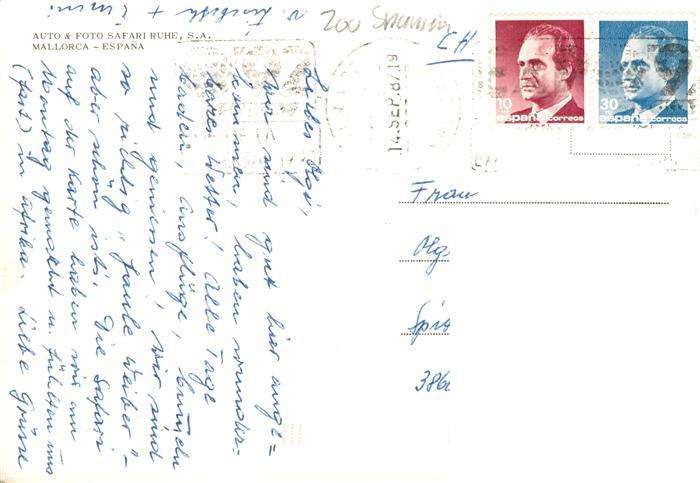 AUTO & FOTO SAFARI RUHE, S.A.
MALLORCA - ESPAÑA
200
CH
10
españa correos
30
españa correos
14.SEP.87/19
Liebe Olga,
wir sind gut hier ange=
kommen, haben wunder-
bares Wetter! Alle Tage
baden, Ausflüge, bummeln
und geniessen, wir sind
so richtig "faule Weiber" -
aber schön ist's. Die Safari
auf der Karte haben wir am
Montag gemacht u. fühlten uns
(fast) in Afrika. Liebe Grüsse
v. + Emmi
Frau
Olg
Spit
386